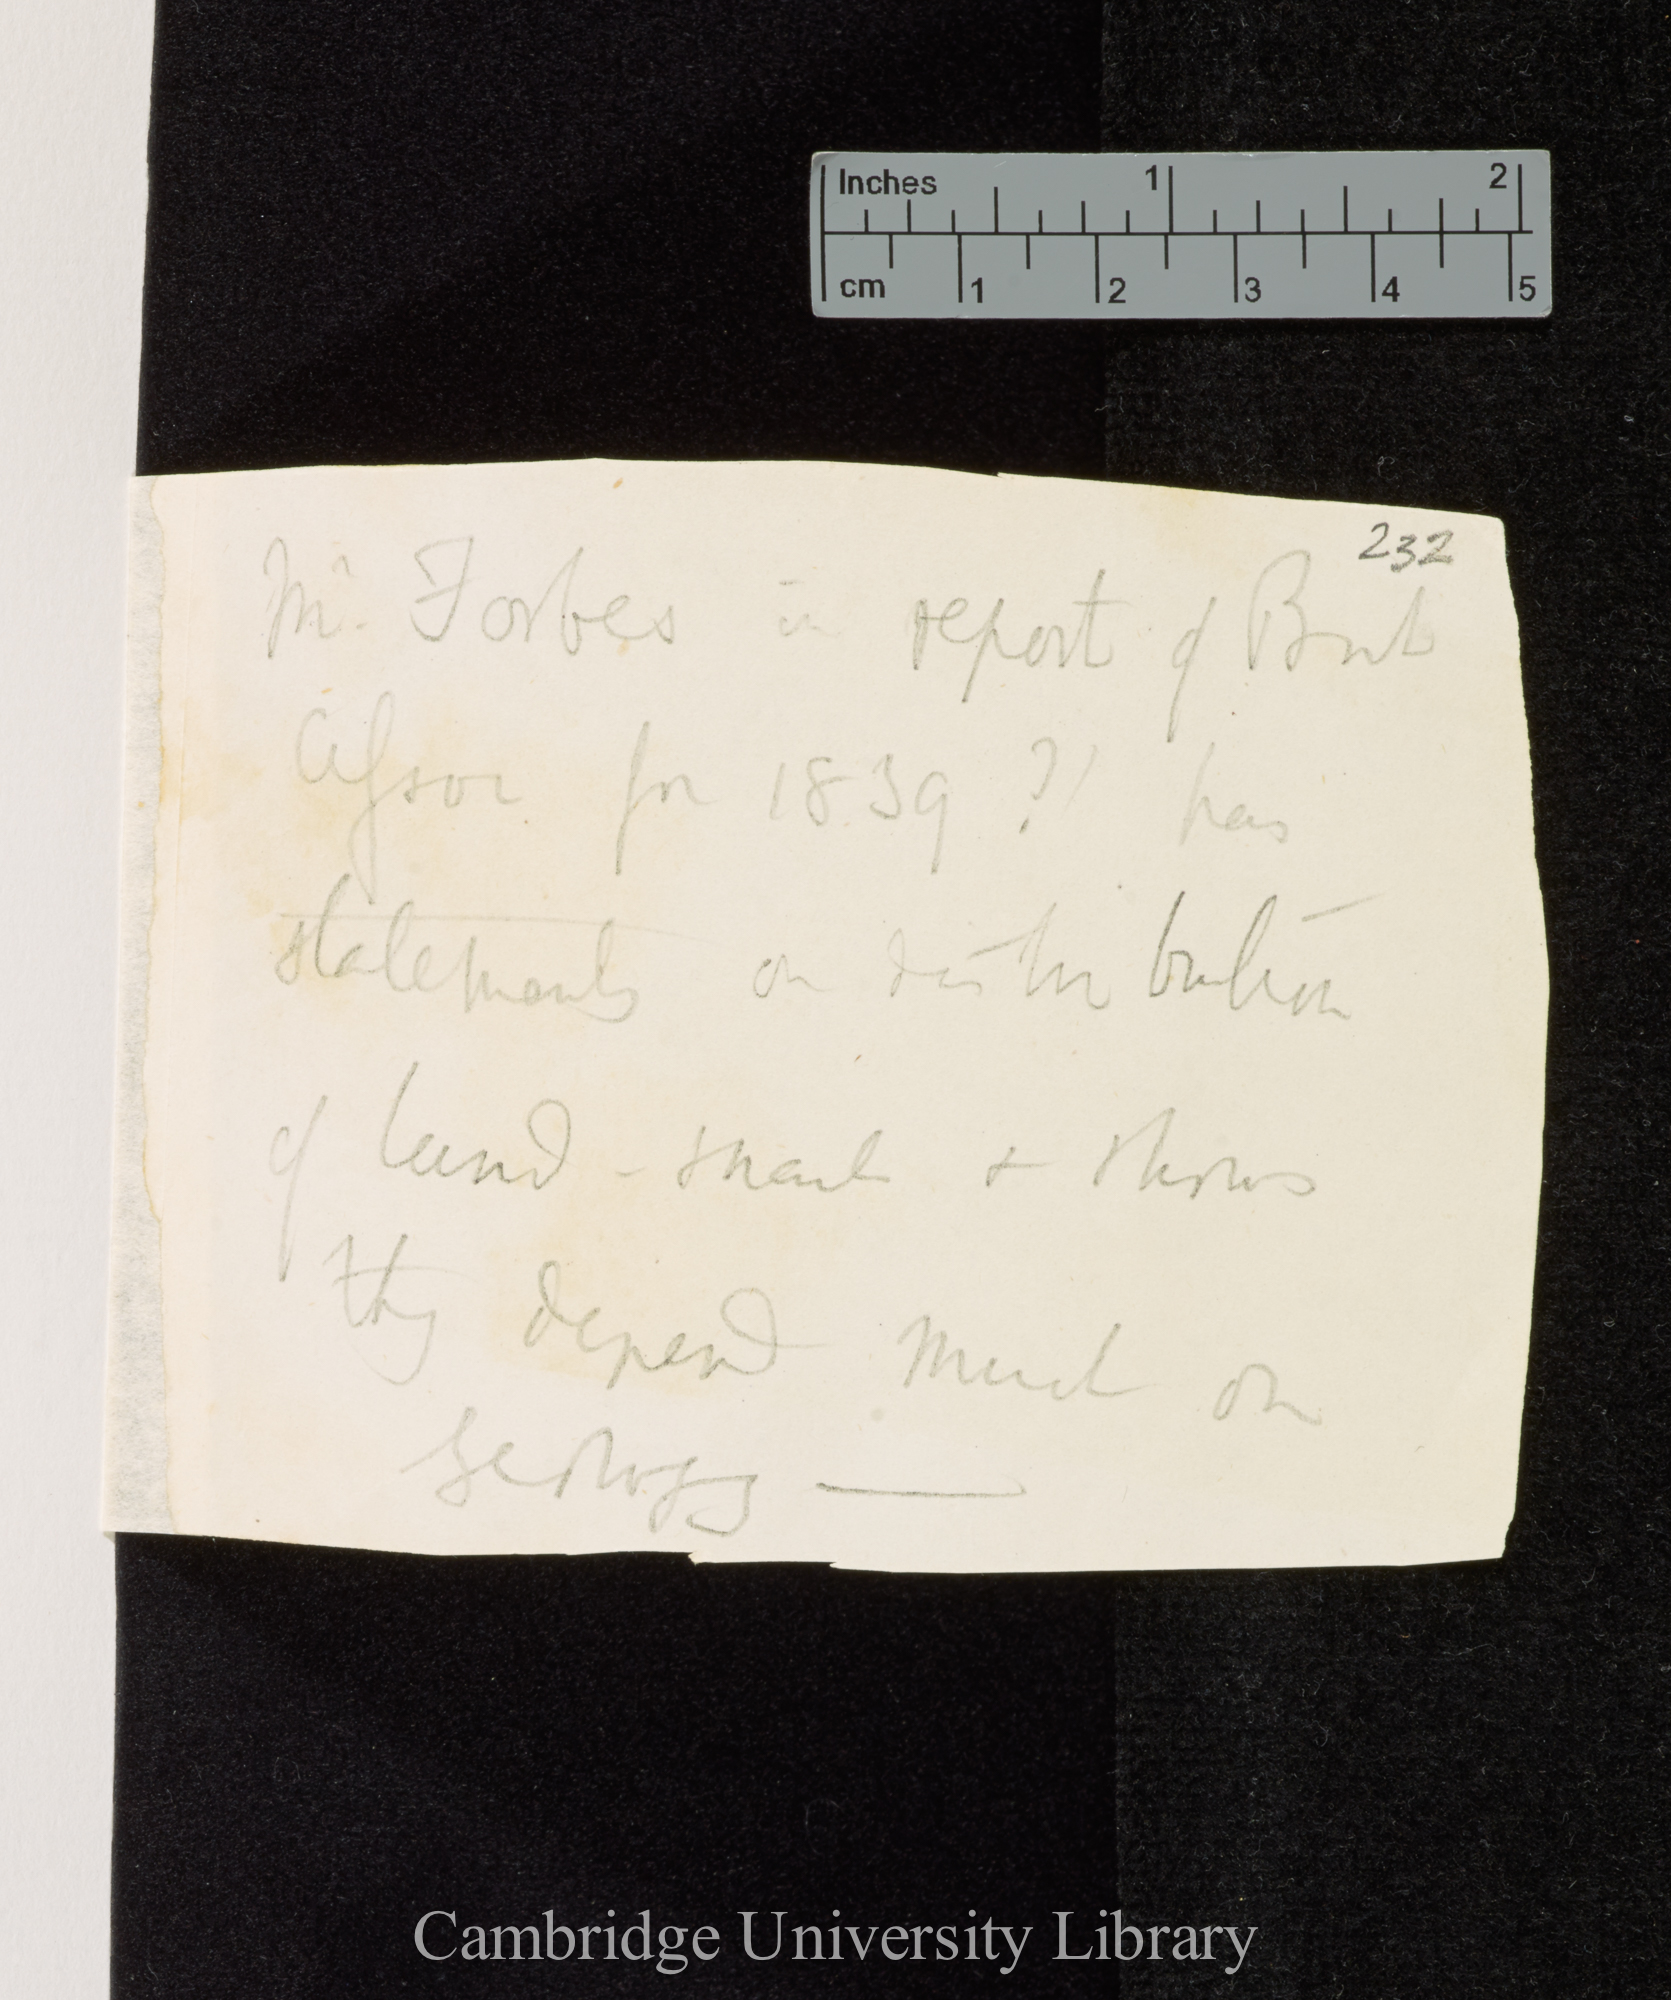 Inches 1 2
cm 1 2 3 4 5
232
Mr. Forbes in report of Brit
Assoc for 1839?! has
statements on distribution
of land-snails + shows
they depend much on
geology —
Cambridge University Library